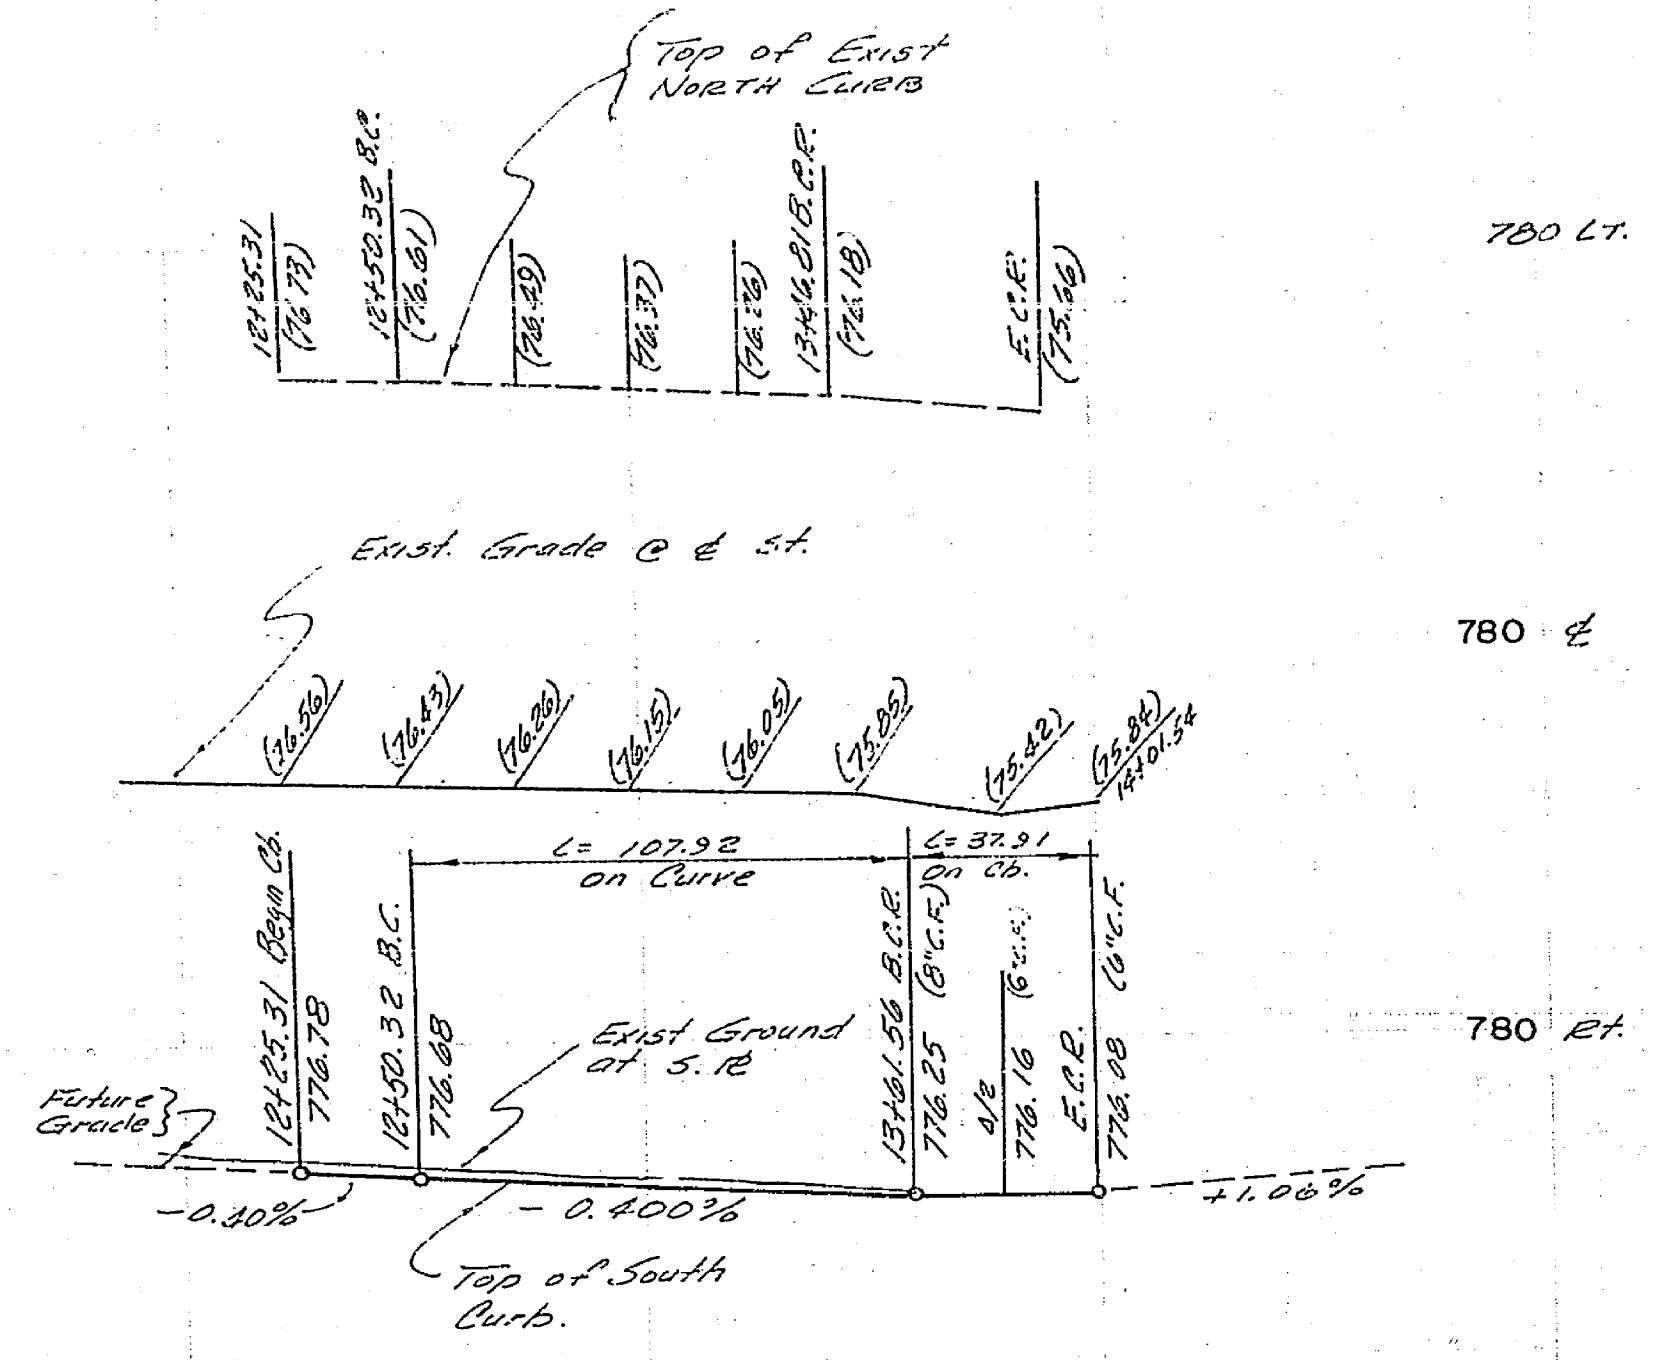 Top of Exist
NORTH CURB
12+25.31
(76.73)
12+50.32 B.C.
(76.61)
(76.49)
(76.37)
(76.26)
13+46.81 B.C.R.
(76.18)
E.C.R.
(75.66)
780 LT.
Exist. Grade @ ℄ st.
780 ℄
(76.56)
(76.43)
(76.26)
(76.15)
(76.05)
(75.85)
(75.42)
(75.84)
14+01.54
L= 107.92
on Curve
L= 37.91
on Cb.
12+25.31 Begin Cb.
776.78
12+50.32 B.C.
776.68
Exist Ground
at S. ⅊
13+61.56 B.C.R.
776.25 (8"C.F.)
Δ/2
776.16 (6"C.F.)
E.C.R.
776.08 (6"C.F.
780 Rt.
Future
Grade
-0.40%
- 0.400%
+1.06%
Top of South
Curb.